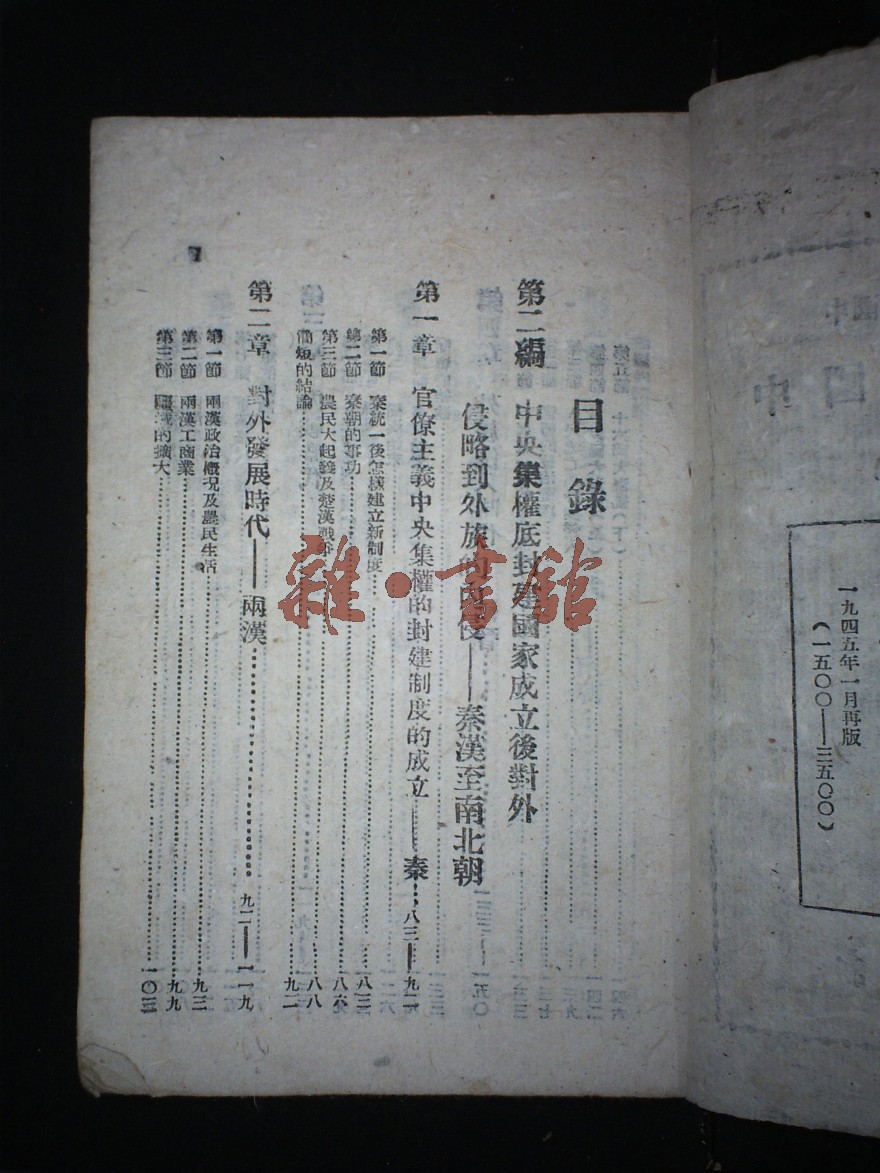 目錄
第二編 中央集權底封建國家成立後對外
侵略到外族的內侵——秦漢至南北朝
第一章 官僚主義中央集權的封建制度的成立——秦……八三——九二
第一節 秦統一後怎樣建立新制度……八三
第二節 秦朝的事功……八六
第三節 農民大起義及楚漢戰爭……八八
簡短的結論……九二
第二章 對外發展時代——兩漢……九二——一一九
第一節 兩漢政治概况及農民生活……九三
第二節 兩漢工商業……九九
第三節 疆域的擴大……一〇三
一九四五年一月再版
（一五〇〇——三五〇〇）
雜·書館